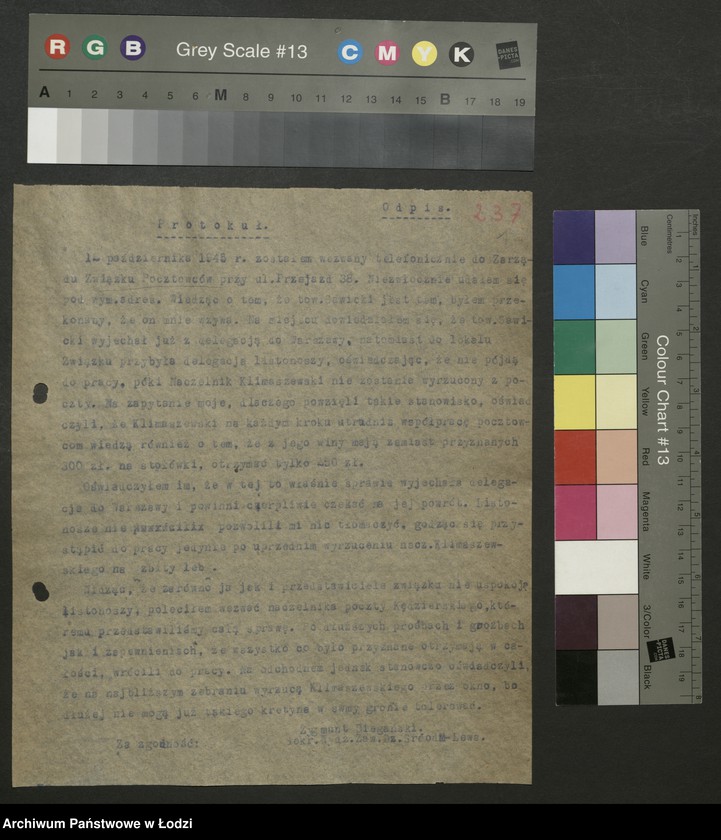 R G B Grey Scale #13 C M Y K DANES-PICTA
A 1 2 3 4 5 6 M 8 9 10 11 12 13 14 15 B 17 18 19
O d p i s. 237
P r o t o k u ł.
października 1945 r. zostałem wezwany telefonicznie do Zarzą-
du Związku Pocztowców przy ul.Przejazd 38. Niezwłocznie udałem się
pod wym.adres. Wiedząc o tem, że tow.Sawicki jest tam, byłem prze-
konany, że on mnie wzywa. Na miejscu dowiedziałem się, że tow.Sawi-
cki wyjechał już z delegacją do Warszawy, natomiast do lokalu
Związku przybyła delegacja listonoszy, oświadczając, że nie pójdą
do pracy, póki Naczelnik Klimaszewski nie zostanie wyrzucony z po-
czty. Na zapytanie moje, dlaczego powzięli takie stanowisko, oświad
czyli, że Klimaszewski na każdym kroku utrudnia współpracę pocztow-
com wiedzą również o tem, że z jego winy mają zamiast przyznanych
300 zł. na stołówki, otrzymać tylko 250 zł.
Oświadczyłem im, że w tej to właśnie sprawie wyjechała delega-
cja do Warszawy i powinni cierpliwie czekać na jej powrót. Listo-
nosze nie pozwolili mi nic tłomaczyć, godząc się przy-
stąpić do pracy jedynie po uprzednim wyrzuceniu nacz.Klimaszew-
skiego na zbity łeb.
Widząc, że zarówno ja jak i przedstawiciele związku nie uspokoją
listonoszy, poleciłem wezwać naczelnika poczty Kędzierskiego,któ-
remu przedstawiliśmy całą sprawę. Po dłuższych prośbach i groźbach
jak i zapewnieniach, że wszystko co było przyznane otrzymają w ca-
łości, wrócili do pracy. Na odchodnem jednak stanowczo oświadczyli,
że na najbliższem zebraniu wyrzucą Klimaszewskiego przez okno, bo
dłużej nie mogą już takiego kretyna w swym gronie tolerować.
Zygmunt
Za zgodność: Sekr.
Colour Chart #13
Blue
Cyan
Green
Yellow
Red
Magenta
White
3/Color
Black
Centimetres
Inches
DANES-PICTA
Archiwum Państwowe w Łodzi